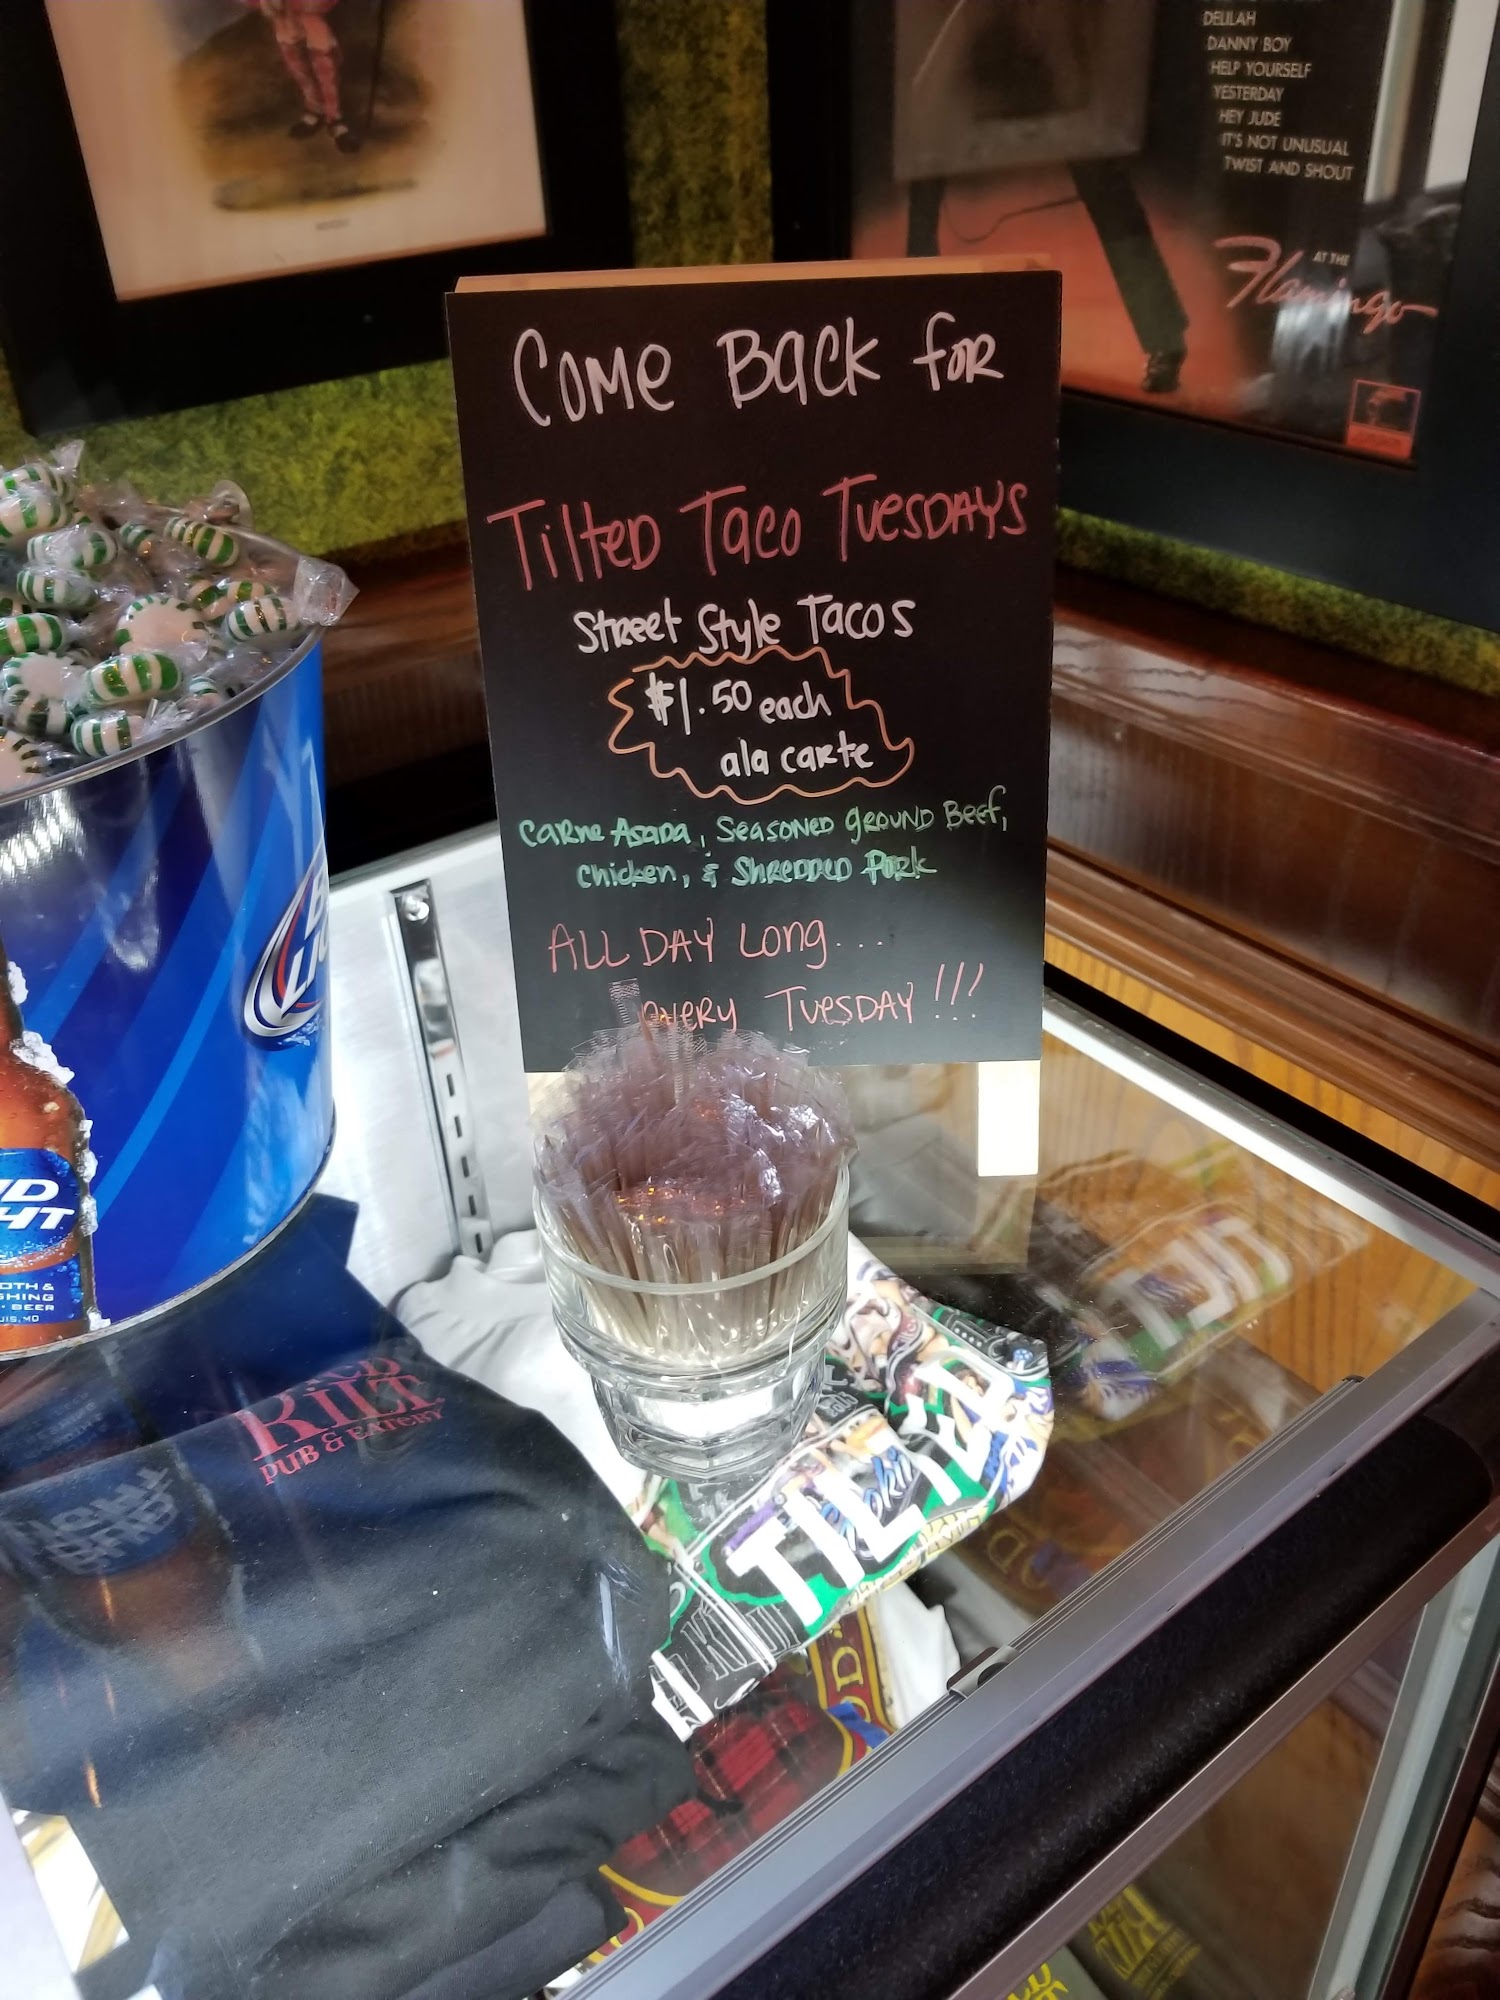 DELILAH
DANNY BOY
HELP YOURSELF
YESTERDAY
HEY JUDE
IT'S NOT UNUSUAL
TWIST AND SHOUT
AT THE
Flamingo
Come Back for
Tilted Taco Tuesdays
Street Style Tacos
$1.50 each
ala carte
Carne Asada, Seasoned Ground Beef,
Chicken, & Shredded Pork
ALL DAY Long...
every Tuesday!!!
KILT
PUB & EATERY
TILTED
BEER